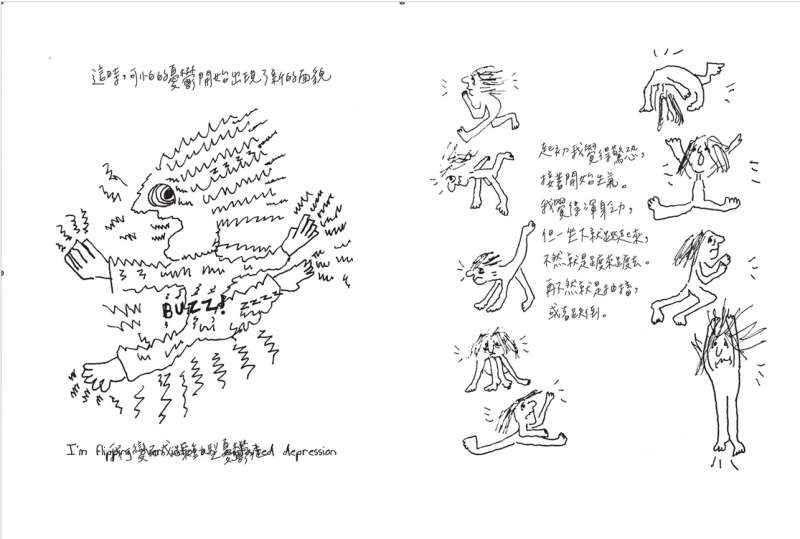 這時，可怕的憂鬱開始出現了新的面貌
BUZZ!
zzzz
I'm flipping 憂鬱 depression
起初我覺得驚恐，
接著開始生氣。
我覺得渾身
但一坐下就跳起來，
不然就是踱來踱去。
再不然就是抽搐，
或者跌倒。